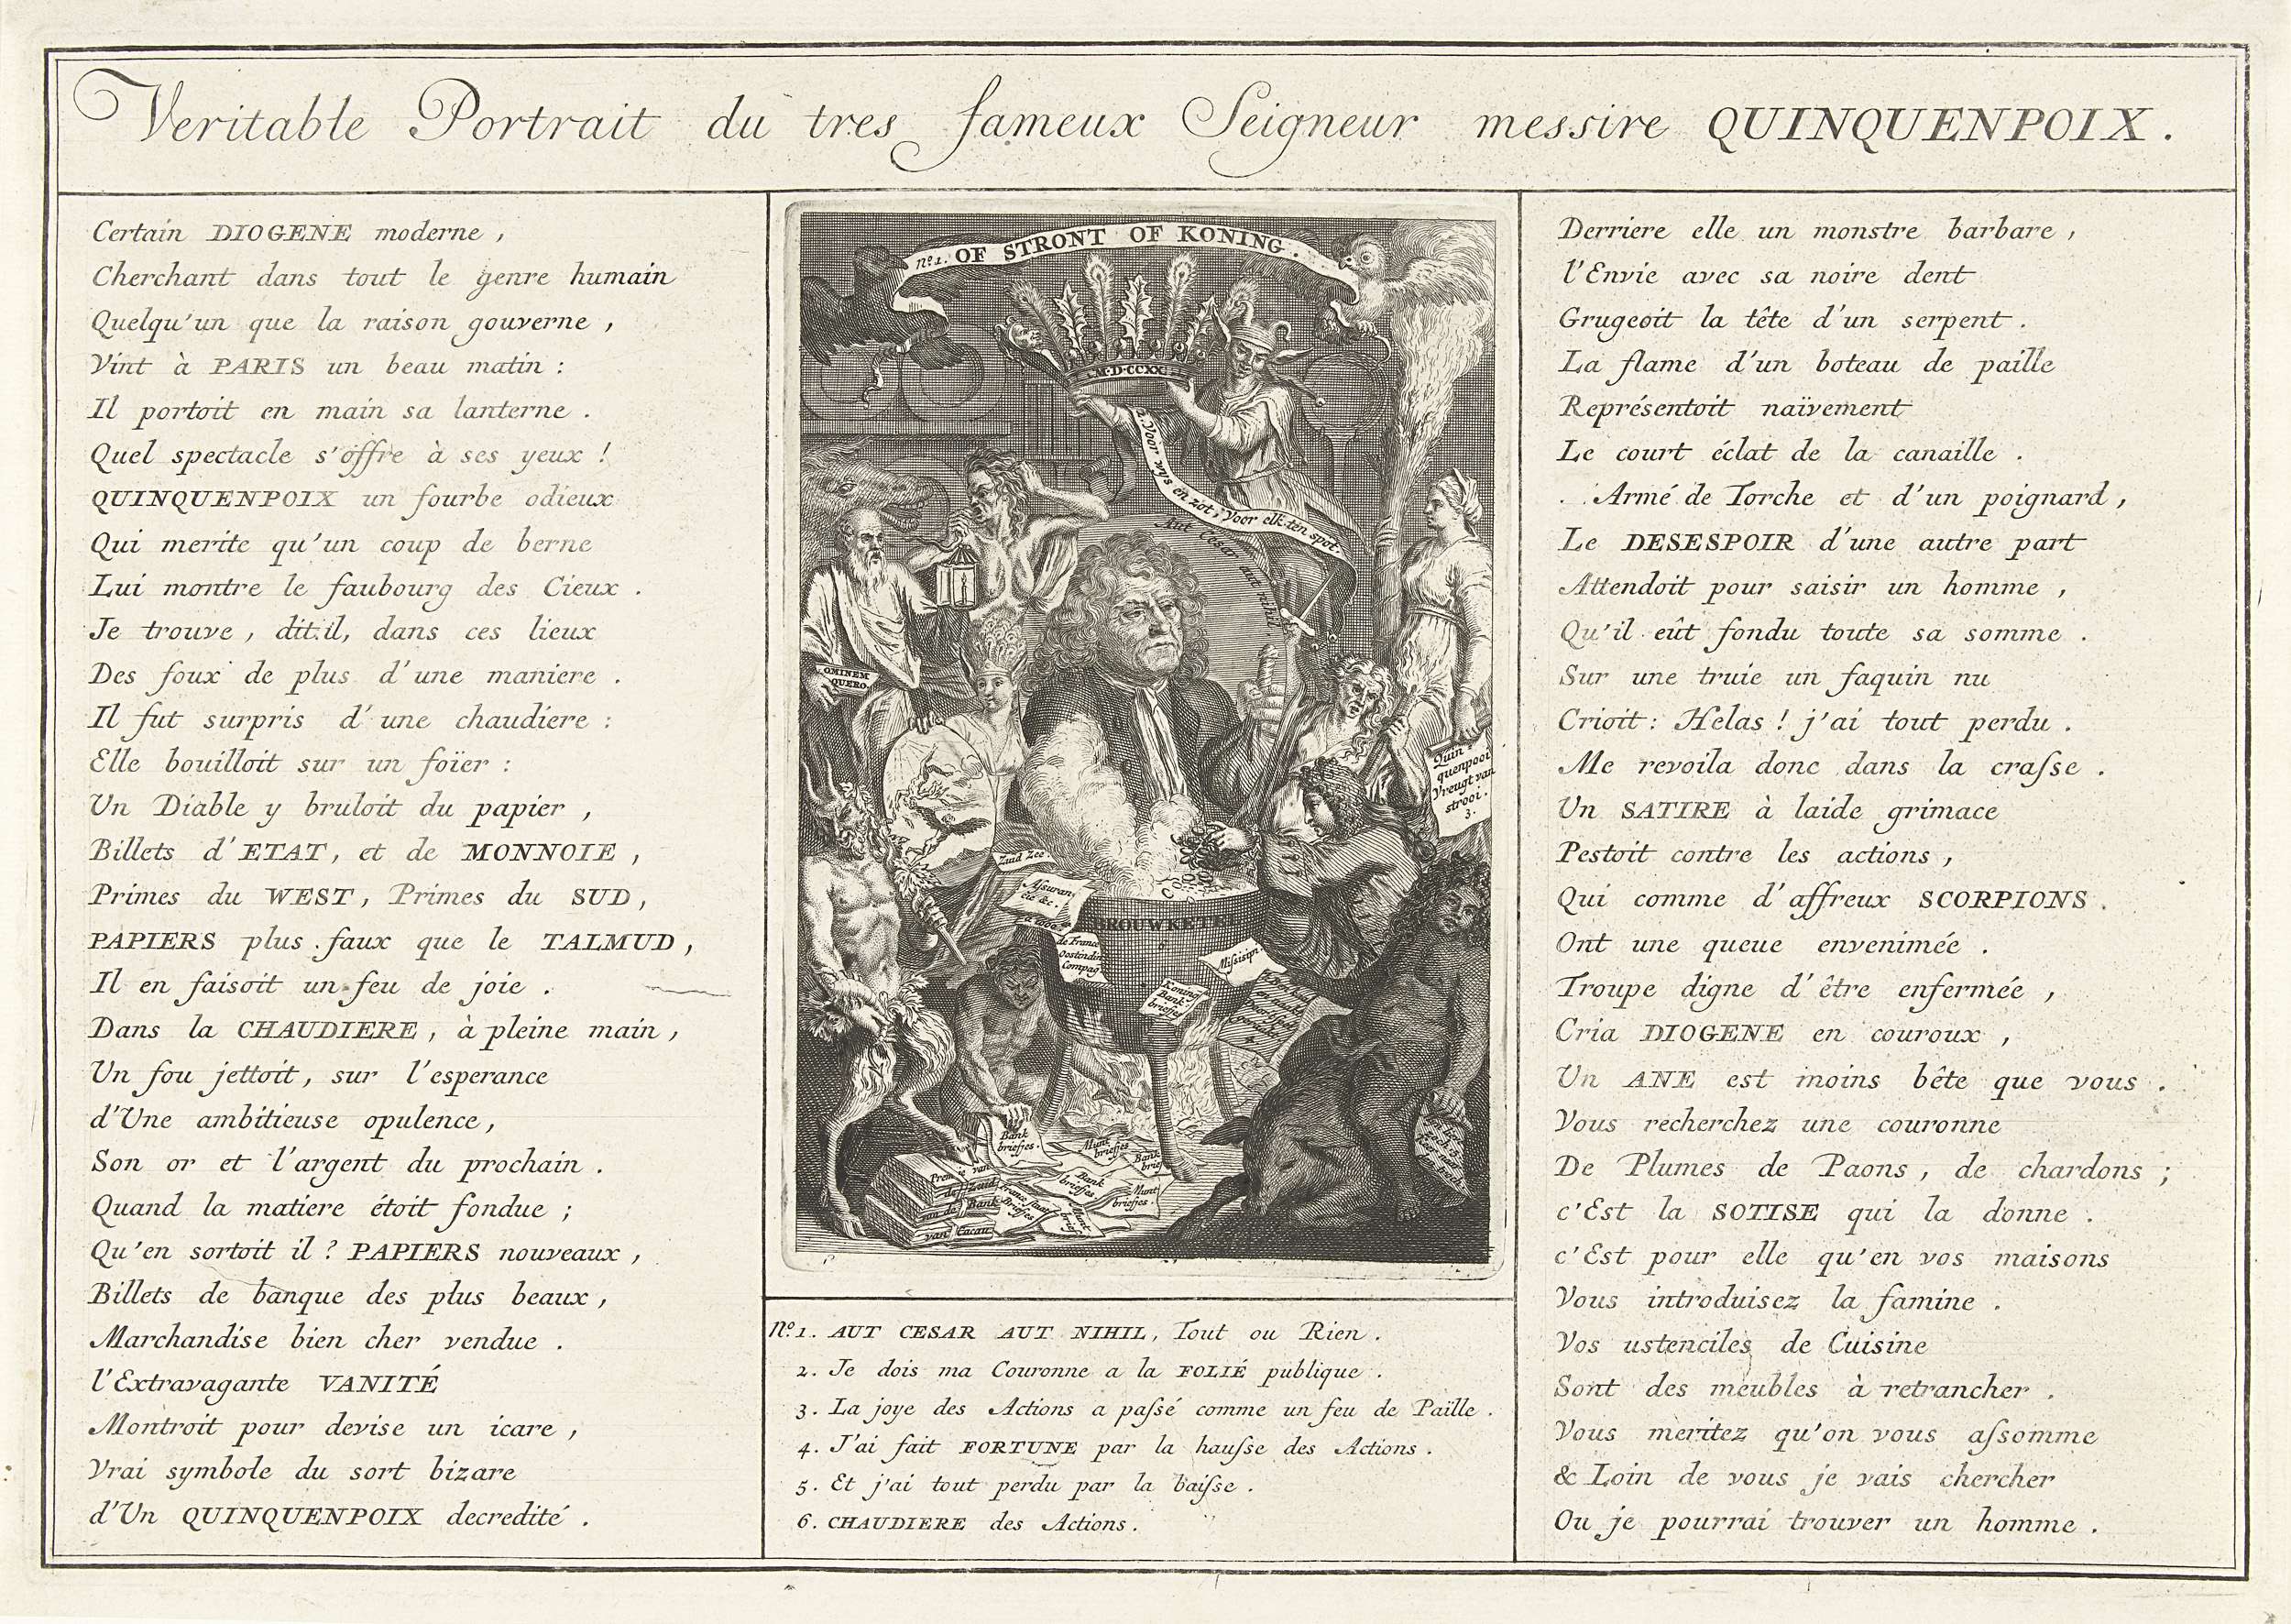 Veritable Portrait du tres fameux Seigneur messire QUINQUENPOIX.
Certain DIOGENE moderne,
Cherchant dans tout le genre humain
Quelqu'un que la raison gouverne,
Vint à PARIS un beau matin:
Il portoit en main sa lanterne.
Quel spectacle s'offre à ses yeux!
QUINQUENPOIX un fourbe odieux
Qui merite qu'un coup de berne
Lui montre le faubourg des Cieux.
Je trouve, dit:il, dans ces lieux
Des foux de plus d'une maniere.
Il fut surpris d'une chaudiere:
Elle bouilloit sur un foïer:
Un Diable y bruloit du papier,
Billets d'ETAT, et de MONNOIE,
Primes du WEST, Primes du SUD,
PAPIERS plus faux que le TALMUD,
Il en faisoit un feu de joie.
Dans la CHAUDIERE, à pleine main,
Un fou jettoit, sur l'esperance
d'Une ambitieuse opulence,
Son or et l'argent du prochain.
Quand la matiere étoit fondue;
Qu'en sortoit il? PAPIERS nouveaux,
Billets de banque des plus beaux,
Marchandise bien cher vendue.
l'Extravagante VANITÉ
Montroit pour devise un icare,
Vrai symbole du sort bizare
d'Un QUINQUENPOIX decredité.
No.1. OF STRONT OF KONING.
M·D·CCXX
2. Voor wys en zot; Voor elk ten spot.
Aut Cesar aut nihil.
OMINEM
QUERO.
Quin
quenpooi
Vreugt van
strooi.
3.
Zuid Zee
Assuran
cie &c.
BROUWKETEL
6
de France
Oostendse
Compag
Missisipi
Koning
Bank
briefjes
Bank
briefjes.
Munt
briefjes
Bank
brief
Premie van
de Zuid
Bank
briefjes
Munt
briefjes.
van de Bank
van Cacau
No.1. AUT CESAR AUT NIHIL, Tout ou Rien.
2. Je dois ma Couronne a la FOLIÉ publique.
3. La joye des Actions a passé comme un feu de Paille.
4. J'ai fait FORTUNE par la hausse des Actions.
5. Et j'ai tout perdu par la baisse.
6. CHAUDIERE des Actions.
Derriere elle un monstre barbare,
l'Envie avec sa noire dent
Grugeoit la tête d'un serpent.
La flame d'un boteau de paille
Représentoit naïvement
Le court éclat de la canaille.
Armé de Torche et d'un poignard,
Le DESESPOIR d'une autre part
Attendoit pour saisir un homme,
Qu'il eût fondu toute sa somme.
Sur une truie un faquin nu
Crioit: Helas! j'ai tout perdu.
Me revoila donc dans la crasse.
Un SATIRE à laide grimace
Pestoit contre les actions,
Qui comme d'affreux SCORPIONS.
Ont une queue envenimée.
Troupe digne d'être enfermée,
Cria DIOGENE en couroux,
Un ANE est moins bête que vous.
Vous recherchez une couronne
De Plumes de Paons, de chardons;
c'Est la SOTISE qui la donne.
c'Est pour elle qu'en vos maisons
Vous introduisez la famine.
Vos ustenciles de Cuisine
Sont des meubles à retrancher.
Vous meritez qu'on vous assomme
& Loin de vous je vais chercher
Ou je pourrai trouver un homme.